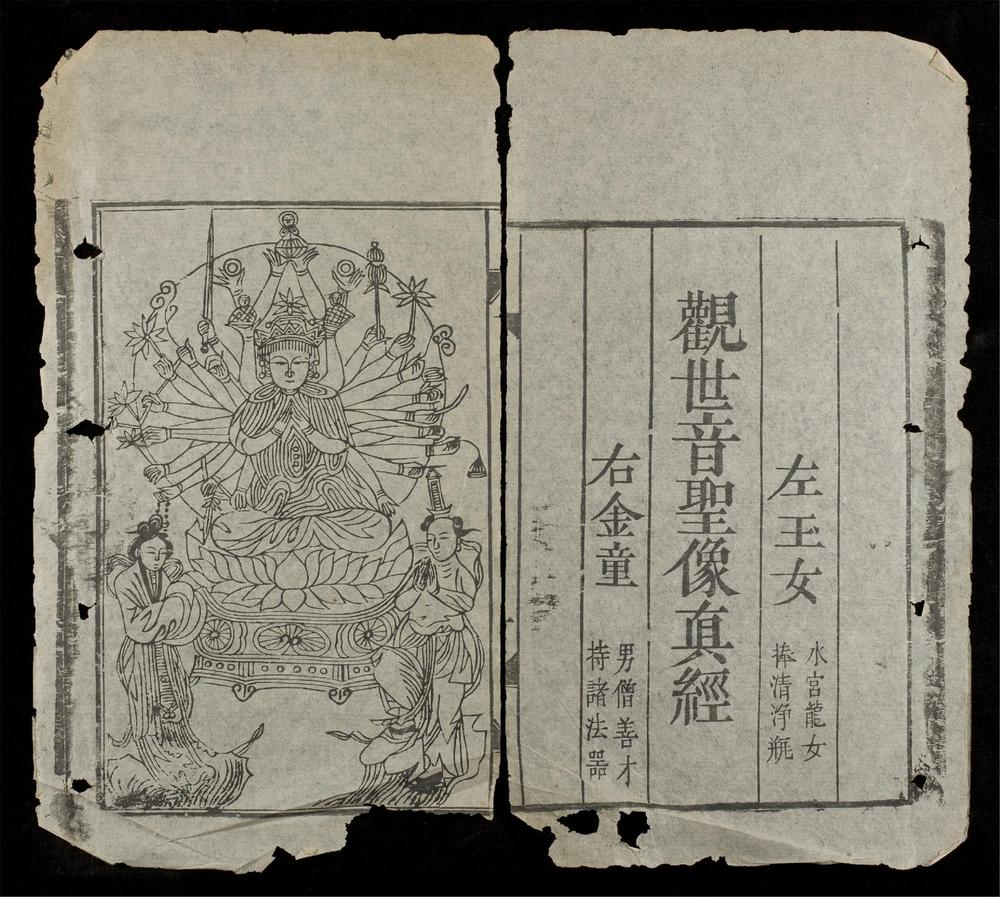 左玉女
水宮龍女
捧清淨瓶
觀世音聖像真經
右金童
男僧善才
持諸法器